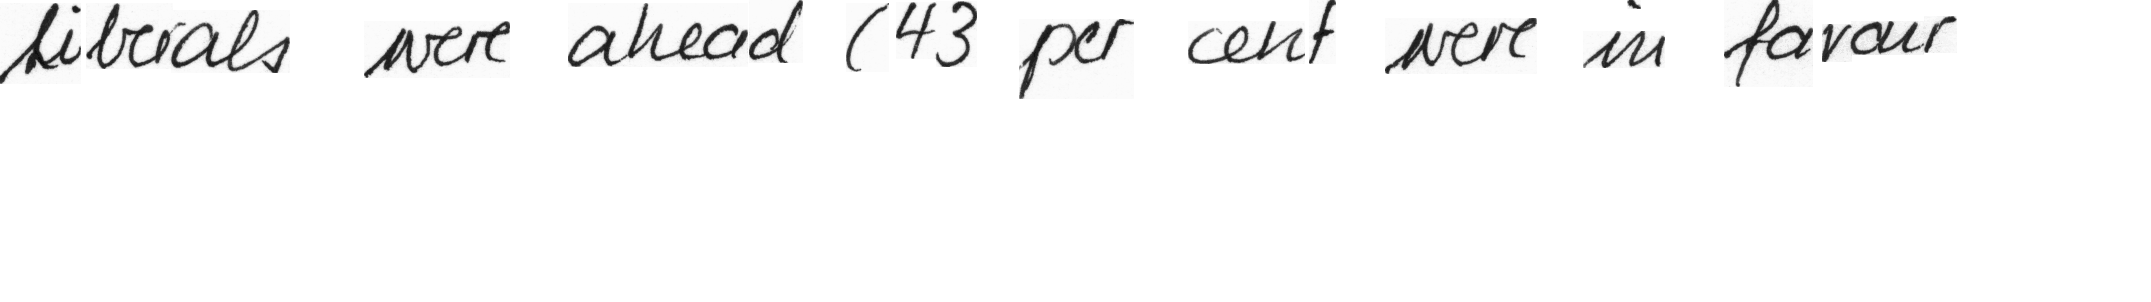 Liberals were ahead (43 per cent were in favour